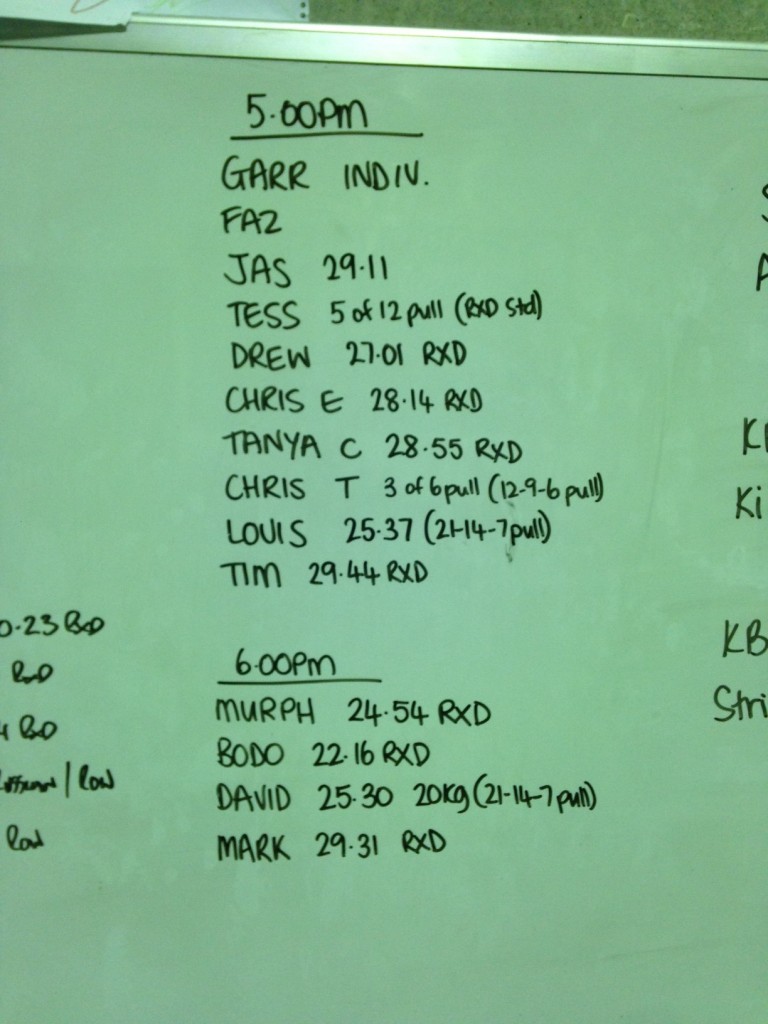 5.00PM
GARR INDIV.
FAZ
JAS 29.11
TESS 5 of 12 pull (RXD Std)
DREW 27.01 RXD
CHRIS E 28.14 RXD
TANYA C 28.55 RXD
CHRIS T 3 of 6 pull (12-9-6 pull)
LOUIS 25.37 (21-14-7 pull)
TIM 29.44 RXD
6.00PM
MURPH 24.54 RXD
BODO 22.16 RXD
DAVID 25.30 20kg (21-14-7 pull)
MARK 29.31 RXD
Row
Row
Ki
KB
Stri